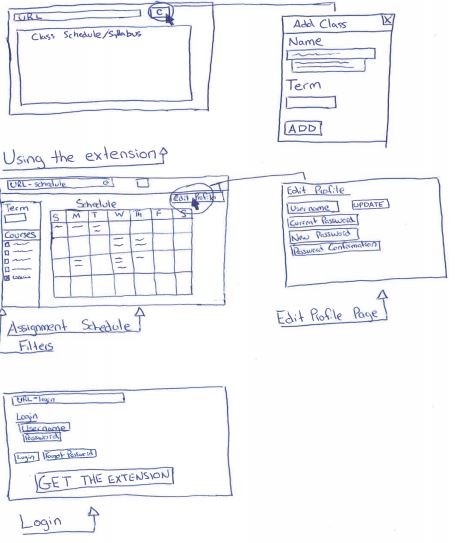 URL
C
Class Schedule/Syllabus
Add Class
X
Name
Term
ADD
Using the extension
URL - schedule
Edit Profile
Term
Schedule
S M T W Th F S
Courses
Edit Profile
Username UPDATE
Current Password
New Password
Password Confirmation
Assignment Schedule
Filters
Edit Profile Page
URL - login
Login
Username
Password
Login Forgot Password
GET THE EXTENSION
Login